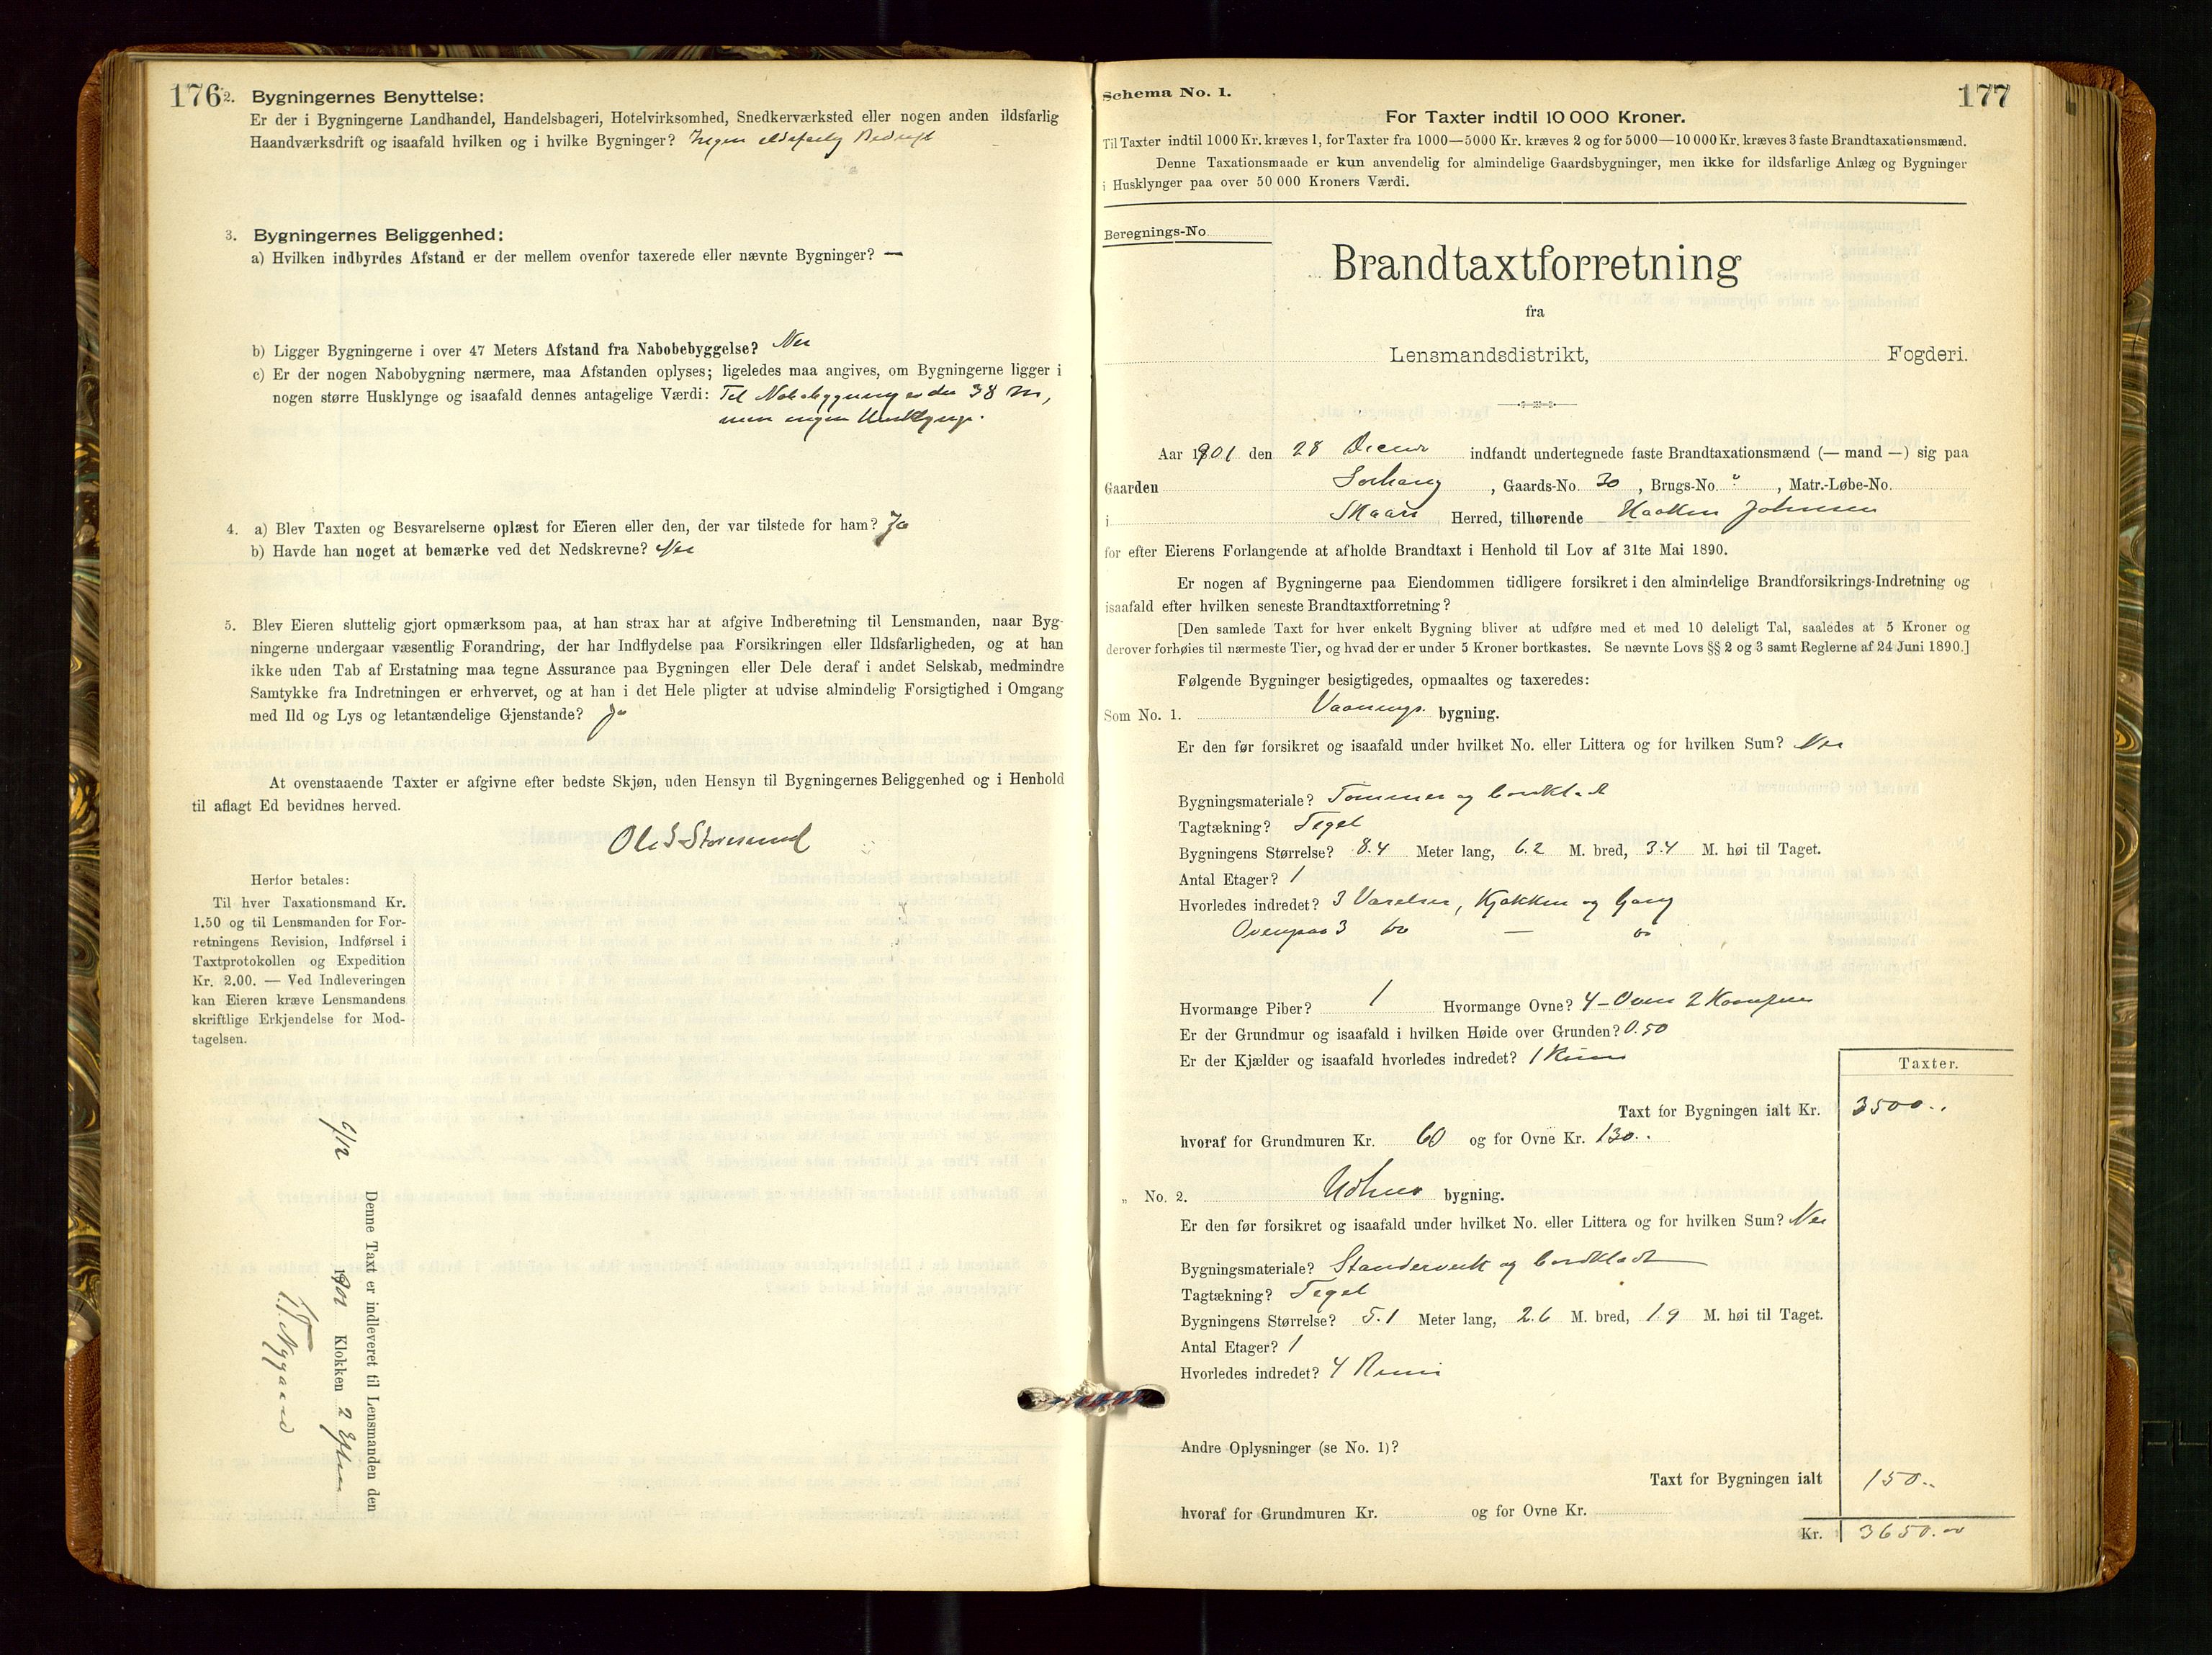 176
2. Bygningernes Benyttelse:
Er der i Bygningerne Landhandel, Handelsbageri, Hotelvirksomhed, Snedkerværksted eller nogen anden ildsfarlig
Haandværksdrift og isaafald hvilken og i hvilke Bygninger? Ingen ildsfarlig Bedrift
3. Bygningernes Beliggenhed:
a) Hvilken indbyrdes Afstand er der mellem ovenfor taxerede eller nævnte Bygninger? —
b) Ligger Bygningerne i over 47 Meters Afstand fra Nabobebyggelse? Nei
c) Er der nogen Nabobygning nærmere, maa Afstanden oplyses; ligeledes maa angives, om Bygningerne ligger i
nogen større Husklynge og isaafald dennes antagelige Værdi: Til Nabobygning er der 38 m,
men ingen Husklynge.
4. a) Blev Taxten og Besvarelserne oplæst for Eieren eller den, der var tilstede for ham? Ja
b) Havde han noget at bemærke ved det Nedskrevne? Nei
5. Blev Eieren sluttelig gjort opmærksom paa, at han strax har at afgive Indberetning til Lensmanden, naar Byg-
ningerne undergaar væsentlig Forandring, der har Indflydelse paa Forsikringen eller Ildsfarligheden, og at han
ikke uden Tab af Erstatning maa tegne Assurance paa Bygningen eller Dele deraf i andet Selskab, medmindre
Samtykke fra Indretningen er erhvervet, og at han i det Hele pligter at udvise almindelig Forsigtighed i Omgang
med Ild og Lys og letantændelige Gjenstande? Ja
At ovenstaaende Taxter er afgivne efter bedste Skjøn, uden Hensyn til Bygningernes Beliggenhed og i Henhold
til aflagt Ed bevidnes herved.
Ole S Storesund
Herfor betales:
Til hver Taxationsmand Kr.
1.50 og til Lensmanden for For-
retningens Revision, Indførsel i
Taxtprotokollen og Expedition
Kr. 2.00. — Ved Indleveringen
kan Eieren kræve Lensmandens
skriftlige Erkjendelse for Mod-
tagelsen.
Denne Taxt er indleveret til Lensmanden den
/12 1901 Klokken 2
Nygaard
Schema No. 1.
177
For Taxter indtil 10 000 Kroner.
Til Taxter indtil 1000 Kr. kræves 1, for Taxter fra 1000—5000 Kr. kræves 2 og for 5000—10 000 Kr. kræves 3 faste Brandtaxationsmænd.
Denne Taxationsmaade er kun anvendelig for almindelige Gaardsbygninger, men ikke for ildsfarlige Anlæg og Bygninger
i Husklynger paa over 50 000 Kroners Værdi.
Beregnings-No
Brandtaxtforretning
fra
Lensmandsdistrikt, Fogderi.
Aar 1901 den 28 indfandt undertegnede faste Brandtaxationsmænd (— mand —) sig paa
Gaarden Sørhaug, Gaards-No. 30, Brugs-No. ", Matr.-Løbe-No.
i Skaare Herred, tilhørende Haakon Johnsen
for efter Eierens Forlangende at afholde Brandtaxt i Henhold til Lov af 31te Mai 1890.
Er nogen af Bygningerne paa Eiendommen tidligere forsikret i den almindelige Brandforsikrings-Indretning og
isaafald efter hvilken seneste Brandtaxtforretning?
[Den samlede Taxt for hver enkelt Bygning bliver at udføre med et med 10 deleligt Tal, saaledes at 5 Kroner og
derover forhøies til nærmeste Tier, og hvad der er under 5 Kroner bortkastes. Se nævnte Lovs §§ 2 og 3 samt Reglerne af 24 Juni 1890.]
Følgende Bygninger besigtigedes, opmaaltes og taxeredes:
Som No. 1. Vaanings bygning.
Er den før forsikret og isaafald under hvilket No. eller Littera og for hvilken Sum? Nei
Bygningsmateriale? Tømmer og bordklædt
Tagtækning? Tegel
Bygningens Størrelse? 8.4 Meter lang, 6.2 M. bred, 3.4 M. høi til Taget.
Antal Etager? 1
Hvorledes indredet? 3 Værelser, Kjøkken og Gang
Ovenpaa 3 do — do
Hvormange Piber? 1 Hvormange Ovne? 4 - Ovne 2 Komfurer
Er der Grundmur og isaafald i hvilken Høide over Grunden? 0.50
Er der Kjælder og isaafald hvorledes indredet? 1 Rum
Taxter.
Taxt for Bygningen ialt Kr. 3500..
hvoraf for Grundmuren Kr. 60 og for Ovne Kr. 130..
„ No. 2. Udhus bygning.
Er den før forsikret og isaafald under hvilket No. eller Littera og for hvilken Sum? Nei
Bygningsmateriale? Standerverk og bordklædt
Tagtækning? Tegel
Bygningens Størrelse? 5.1 Meter lang, 2.6 M. bred, 1.9 M. høi til Taget.
Antal Etager? 1
Hvorledes indredet? 4 Rum
Andre Oplysninger (se No. 1)?
Taxt for Bygningen ialt 150..
hvoraf for Grundmuren Kr. og for Ovne Kr.
Kr. 3650.00